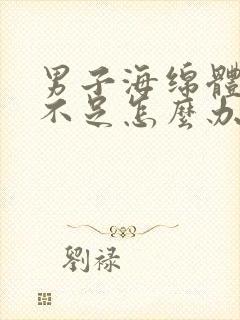 男子海绵體
不足怎麼办
劉禄